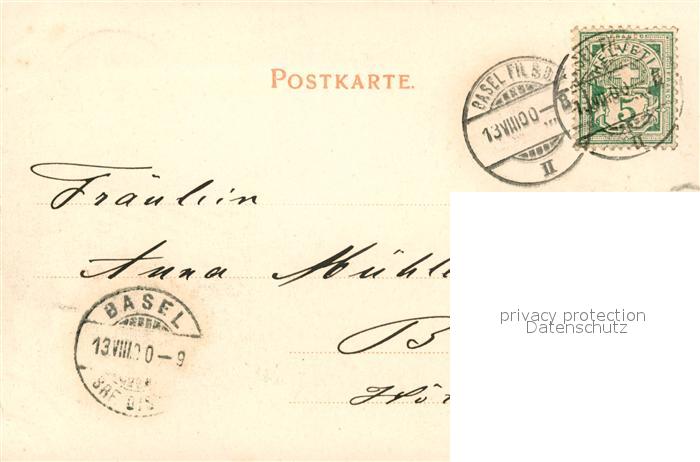 POSTKARTE.
BASEL FIL. S.B.
13.VIII.00-
II
HELVETIA
5
Fräulein
Anna Mühle
B
BASEL
13.VIII.00-9
BRF. DIS
Hö
privacy protection
Datenschutz